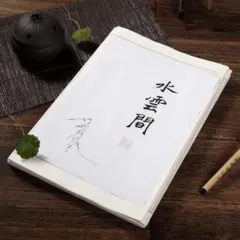 水雲間